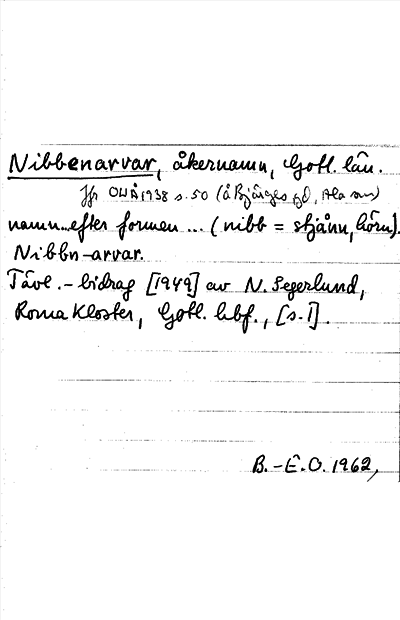 Nibbenarvar, åkernamn, Gotl. län.
Jfr OWÅ 1938 s. 50 (å Bjärges gd, Ala sn)
namn.. efter formen ... (nibb = stjänn, hörn).
Nibbn-arvar.
Tävl.-bidrag [1949] av N. Segerlund,
Roma Kloster, Gotl. hbf., [s. 1].
B.-E.O. 1962,